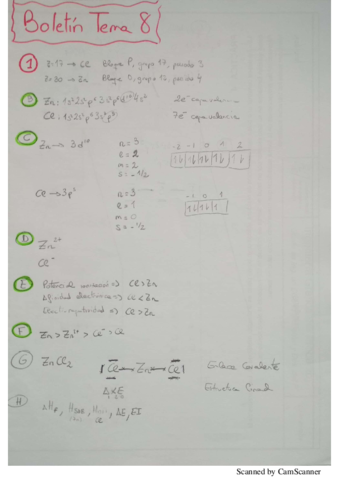 Boletín Tema 8
① Z=17 → Cl Bloque P, grupo 17, periodo 3
Z=30 → Zn Bloque D, grupo 12, periodo 4
B) Zn: 1s² 2s² p⁶ 3s² p⁶ d¹⁰ 4s² 2e⁻ capa valencia
Cl: 1s² 2s² p⁶ 3s² p⁵ 7e⁻ capa valencia
C) Zn → 3d¹⁰ n = 3
l = 2
m = 2
s = -1/2
-2 -1 0 1 2
Cl → 3p⁵ n = 3
l = 1
m = 0
s = -1/2
-1 0 1
D) Zn²⁺
Cl⁻
E) Potencial => Cl > Zn
Afinidad electrónica => Cl < Zn
Electronegatividad => Cl > Zn
F) Zn > Zn²⁺ > Cl⁻ > Cl
G) ZnCl₂ Cl Zn Cl Enlace Covalente
H) AE, EI
Scanned by CamScanner